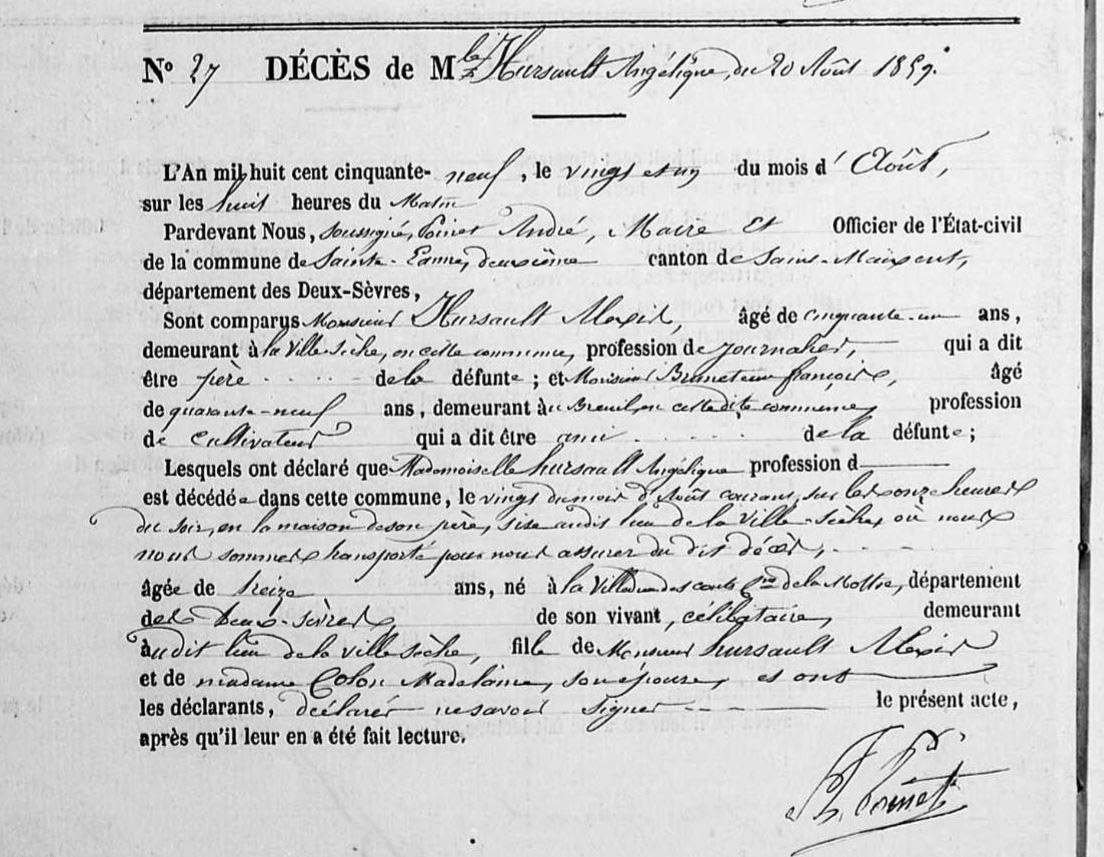 N° 27 DÉCÈS de M.lle Hursault Angélique, du 20 Août 1859.
L'An mil huit cent cinquante-neuf, le vingt et un du mois d'Août,
sur les huit heures du Matin
Pardevant Nous, soussigné, André, Maire et Officier de l'État-civil
de la commune de Sainte-Eanne, deuxième canton de Saint-Maixent,
département des Deux-Sèvres,
Sont comparus Monsieur Hursault Alexis, âgé de cinquante-un ans,
demeurant à la Ville Sèche, en cette commune, profession de journalier, qui a dit
être père de la défunte ; et Monsieur Bruneteau françois, âgé
de quarante-neuf ans, demeurant au Breuil, en cette dite commune, profession
de cultivateur qui a dit être ami de la défunte ;
Lesquels ont déclaré que Mademoiselle hursault Angélique profession d
est décédée dans cette commune, le vingt du mois d'Août courant, sur les onze heures
du soir, en la maison de son père, sise audit lieu de la Ville-sèche, où nous
nous sommes transporté pour nous assurer du dit décès,
âgée de treize ans, né à la de la Mothe, département
des Deux-Sèvres, de son vivant, célibataire, demeurant
audit lieu de la ville sèche, fille de Monsieur hursault Alexis
et de madame Colon Madelaine, son épouse, et ont
les déclarants, déclarés ne savoir signer le présent acte,
après qu'il leur en a été fait lecture.